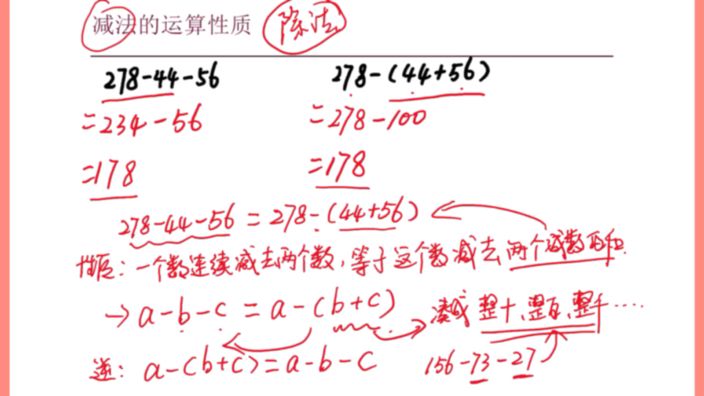 减法的运算性质 除法
278-44-56 278-(44+56)
=234-56 =278-100
=178 =178
278-44-56=278-(44+56)
性质:一个数连续减去两个数,等于这个数减去两个减数的和.
→a-b-c=a-(b+c) 凑成整十、整百、整千……
逆:a-(b+c)=a-b-c 156-73-27